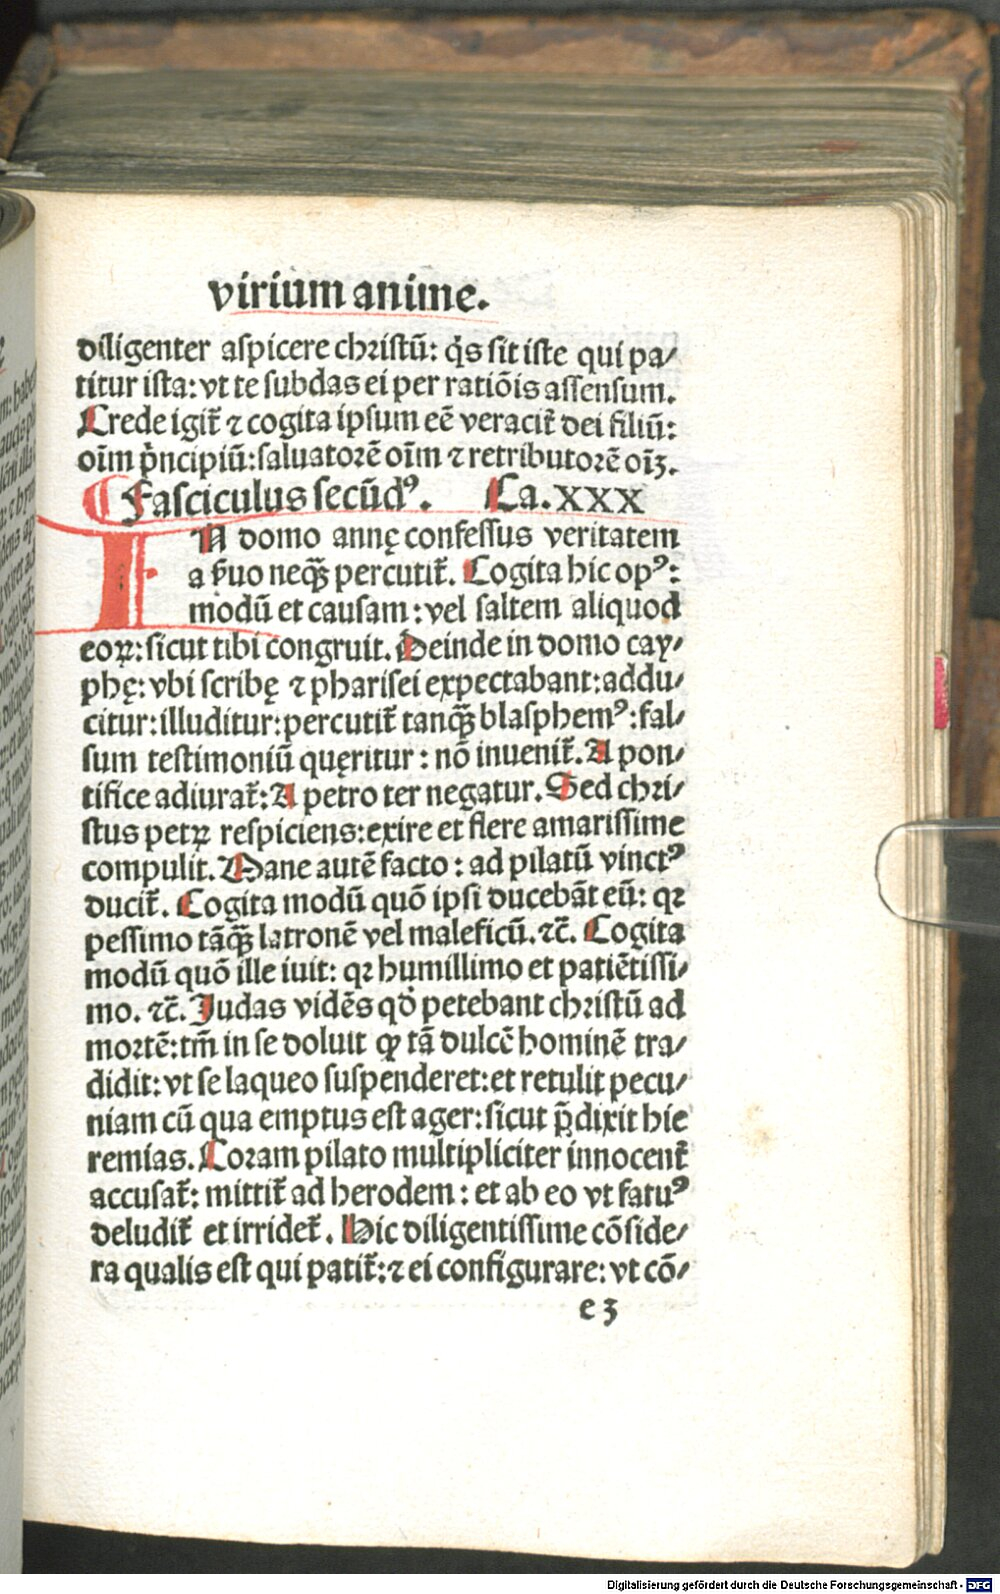 virium anime.
diligenter aspicere christū: q̇s sit iste qui pa/
titur ista: vt te subdas ei per ratiōis assensum.
Crede igit̄ ⁊ cogita ipsum eē veracit̄ dei filiū:
oīm pͥncipiū: saluatorē oīm ⁊ retributorē oīꝫ.
¶ Fasciculus secūdꝰ. Ca. XXX
IN domo annę confessus veritatem
a ẜuo neqꝫ̄ percutit̄. Cogita hic opꝰ:
modū et causam: vel saltem aliquod
eoꝝ: sicut tibi congruit. Deinde in domo cay/
phę: vbi scribę ⁊ pharisei expectabant: addu/
citur: illuditur: percutit̄ tanqꝫ̄ blasphemꝰ: fal/
sum testimoniū quęritur: nō inuenit̄. A pon/
tifice adiurat̄: A petro ter negatur. Sed chri/
stus petꝝ respiciens: exire et flere amarissime
compulit. Mane autē facto: ad pilatū vinctꝰ
ducit̄. Cogita modū quō ipsi ducebāt eū: qꝛ
pessimo tāqꝫ̄ latronē vel maleficū. ⁊c̄. Cogita
modū quō ille iuit: qꝛ humillimo et patiētissi/
mo. ⁊c̄. Judas vidēs qđ petebant christū ad
mortē: tm̄ in se doluit ꝙ tā dulcē hominē tra/
didit: vt se laqueo suspenderet: et retulit pecu/
niam cū qua emptus est ager: sicut p̄dixit hie
remias. Coram pilato multipliciter innocent̄
accusat̄: mittit̄ ad herodem: et ab eo vt fatuꝰ
deludit̄ et irridet̄. Hic diligentissime cōside/
ra qualis est qui patit̄: ⁊ ei configurare: vt cō/
e 3
Digitalisierung gefördert durch die Deutsche Forschungsgemeinschaft - DFG